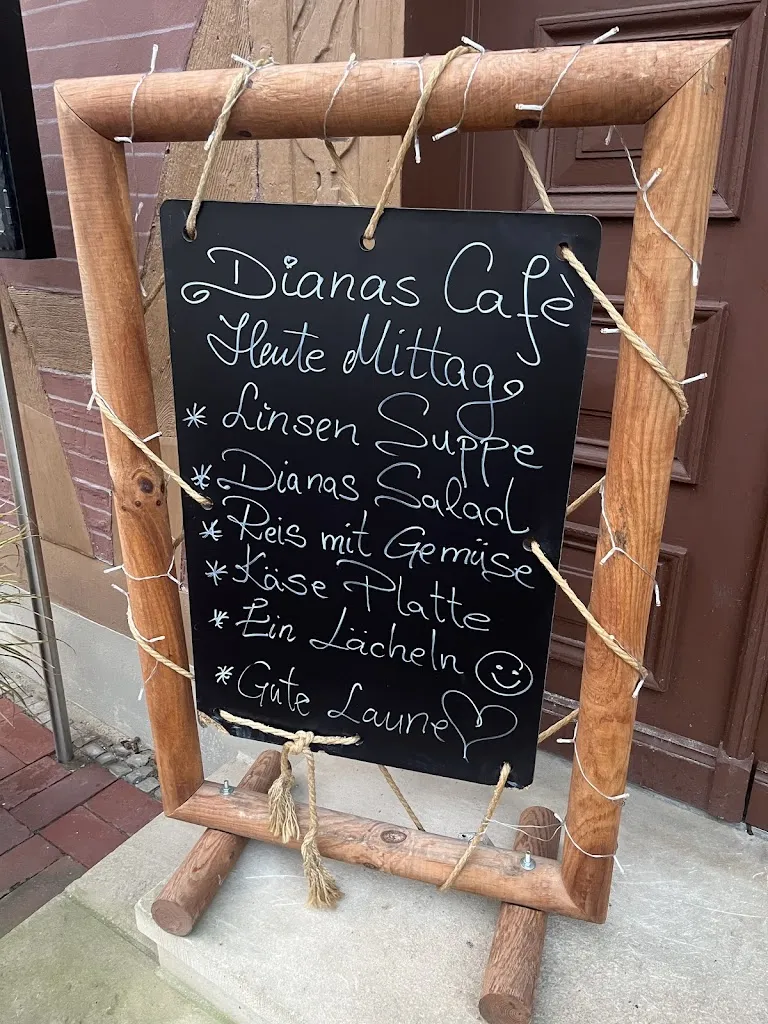 Dianas Cafè
Heute Mittag
* Linsen Suppe
* Dianas Salad
* Reis mit Gemüse
* Käse Platte
* Ein Lächeln ☺
* Gute Laune ♡